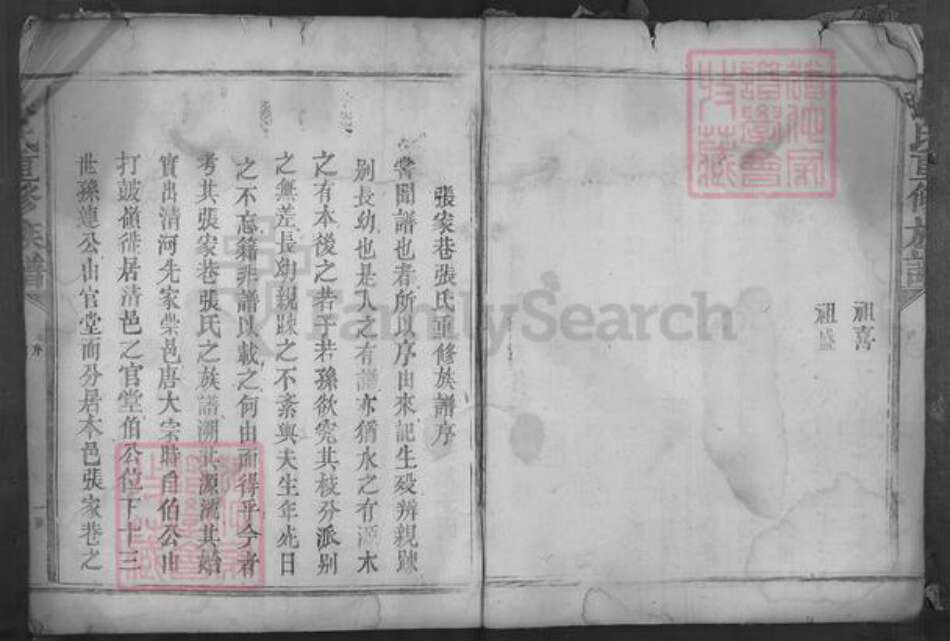 祖喜
祖盛
張家巷張氏重修族譜序
嘗聞譜也者所以序由來記生殁辨親踈
別長幼也是人之有譜亦猶水之有源木
之有本後之若子若孫欲究其枝分派別
之無差長幼親踈之不紊與夫生年死日
之不忘籍非譜以載之何由而得乎今者
考其張家巷張氏之族譜溯其源溯其始
實出清河先家崇邑唐大宗時自伯公由
打鼓嶺徙居清邑之官堂伯公位下十三
世孫連公由官堂而分居本邑張家巷之
氏重修族譜
序
FamilySearch